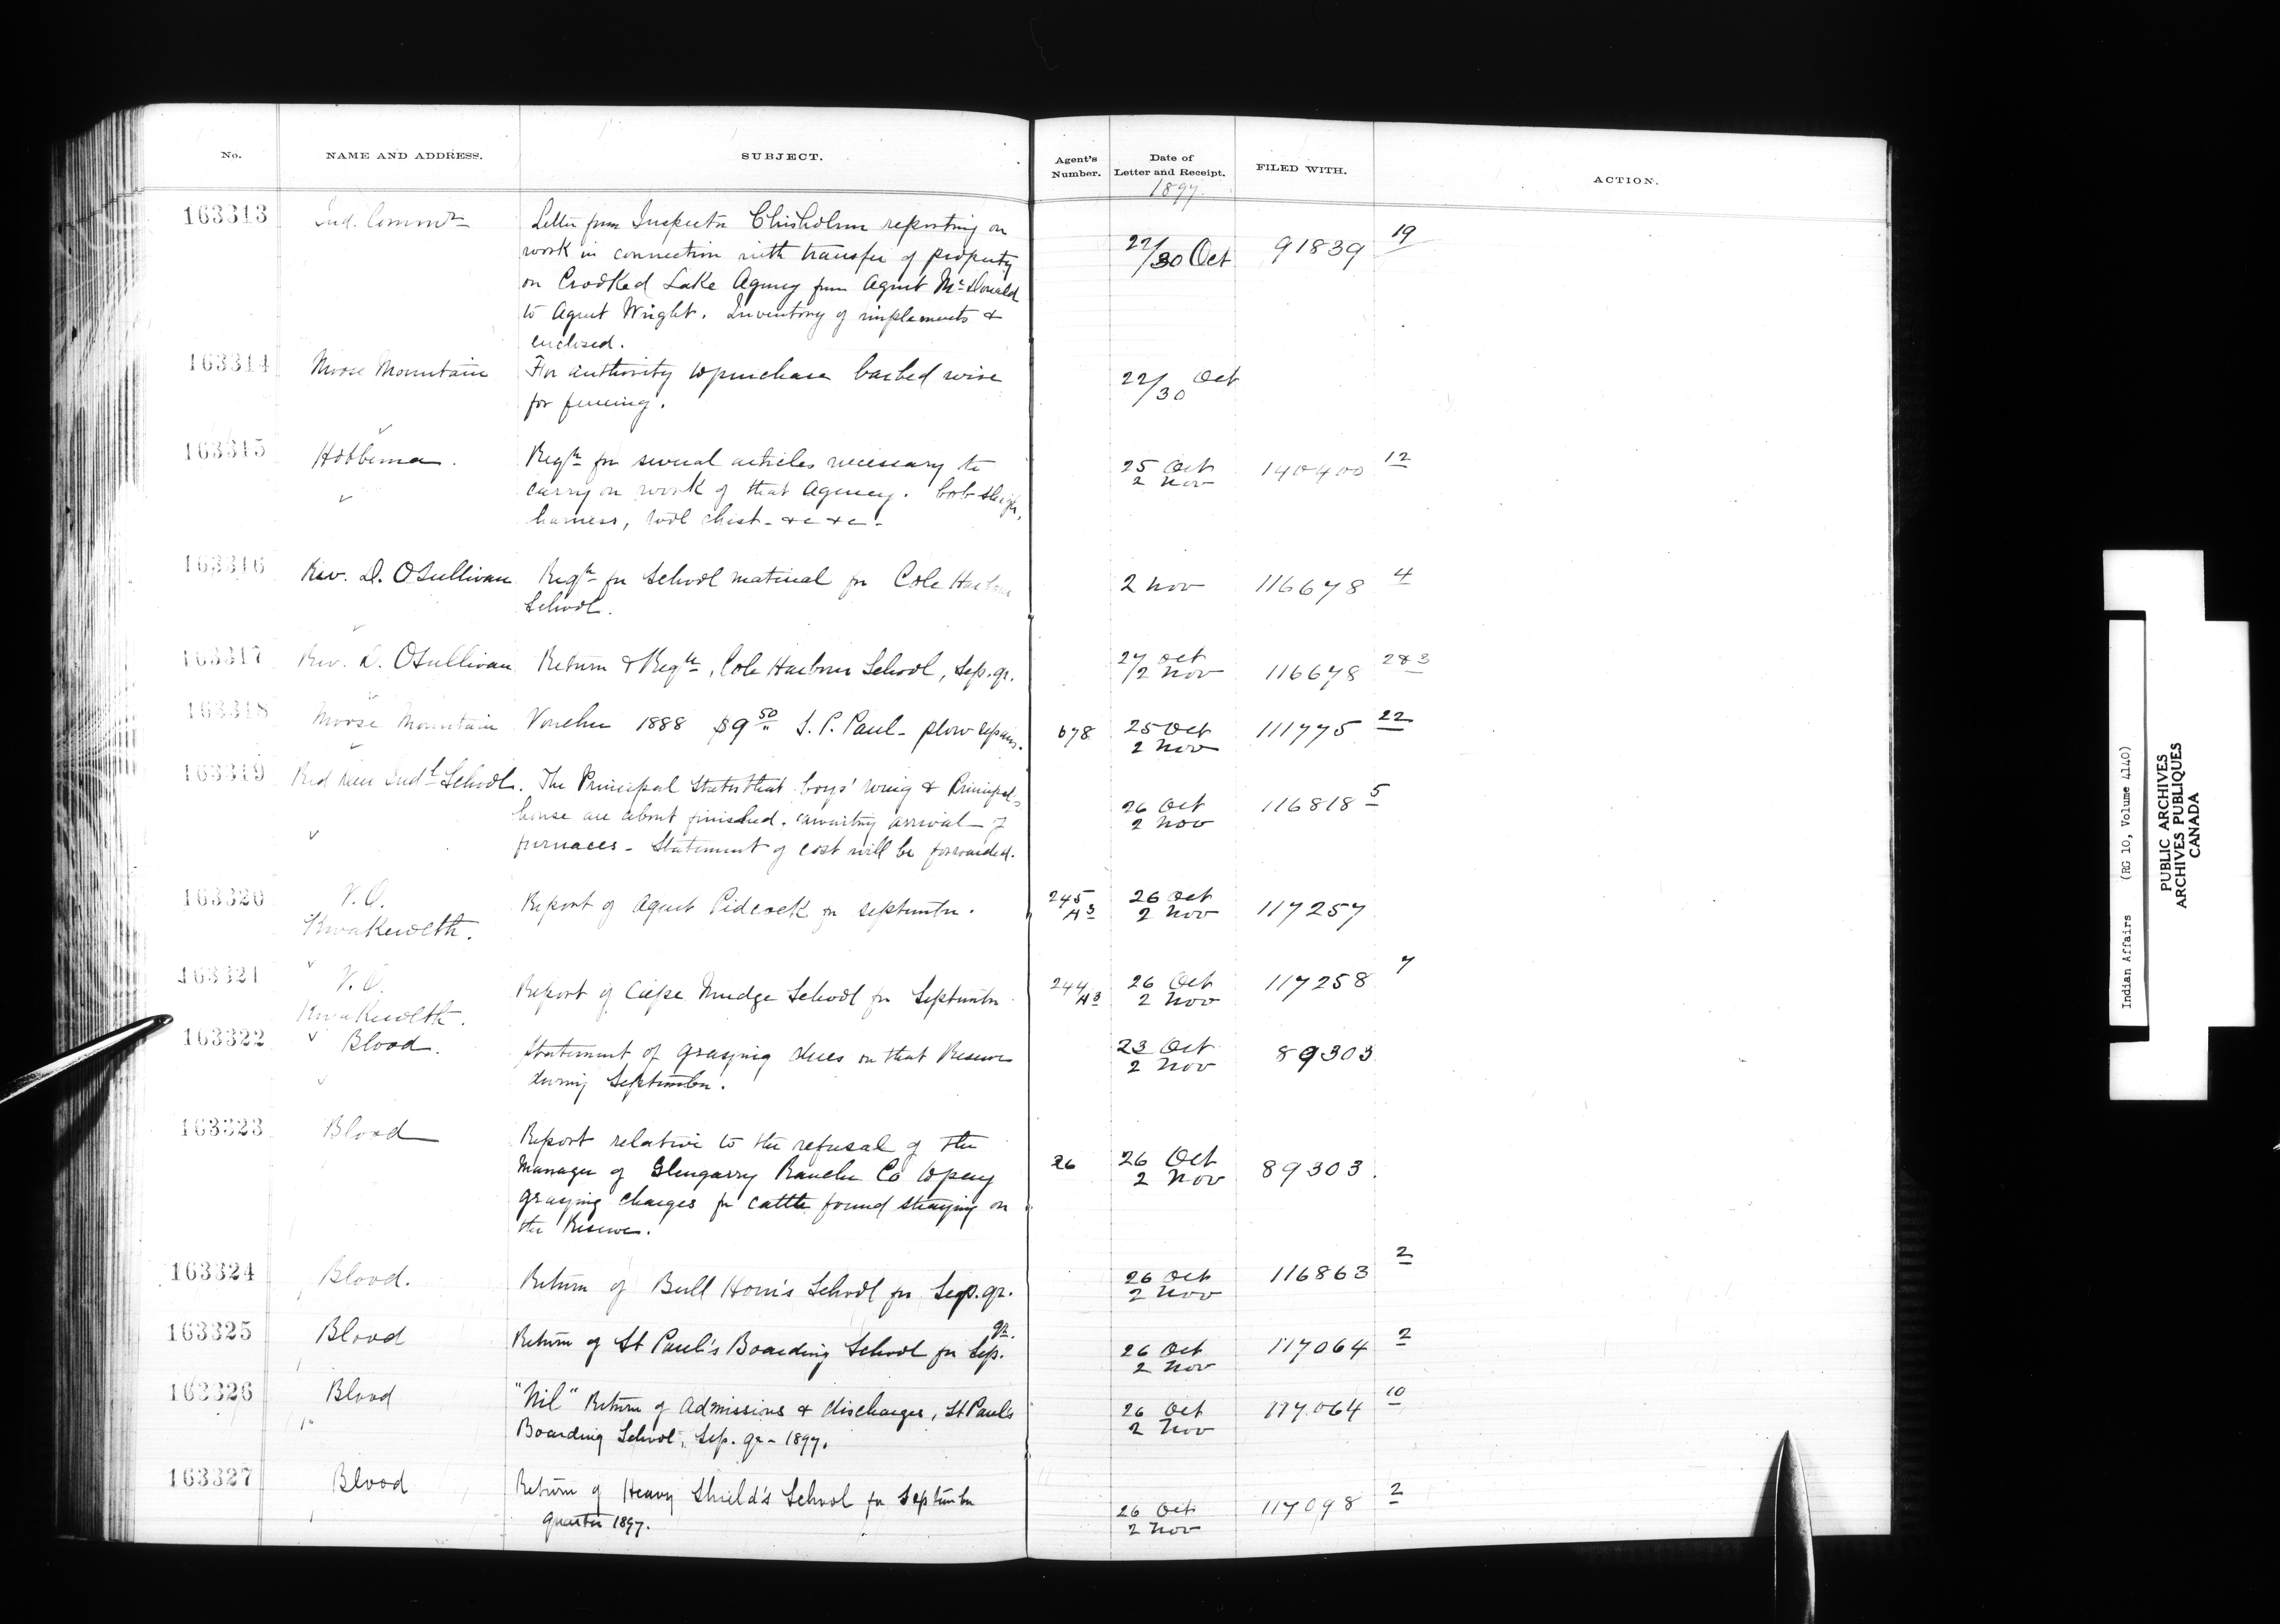 No. NAME AND ADDRESS. SUBJECT. Agent's Number. Date of Letter and Receipt. FILED WITH. ACTION.
1897.
163313 Ind. Commr Letter from Inspector Chisholm reporting on
work in connection with transfer of property 27/30 Oct 91839 19
on Crooked Lake Agency from Agent McDonald
to Agent Wright. Inventory of implements &
enclosed.
163314 Moose Mountain For authority to purchase barbed wire 22/30 Oct
for fencing.
163315 Hobbema. Reqn for several articles necessary to 25 Oct 140400 12
carry on work of that Agency. bob sleighs, 2 Nov
harness, tool chest - &c &c -
163316 Rev. D. OSullivan Reqn for School material for Cole Harbour 2 Nov 116678 4
School.
163317 Rev. D. OSullivan Return & Reqn, Cole Harbour School, Sep. qr. 27 Oct 116678 2&3
/2 Nov
163318 Moose Mountain Voucher 1888 $9 50 S. P. Paul - plow repairs. 678 25 Oct 111775 22
2 Nov
163319 Red Deer Indl School. The Principal States that boys' wing & Principal's
house are about finished. awaiting arrival of 26 Oct 116818 5
furnaces - Statement of cost will be forwarded. 2 Nov
163320 V.O. Report of Agent Pidcock for September. 245 A3 26 Oct 117257
Kwakewlth. 2 Nov
163321 V.O. Report of Cape Mudge School for September 244 A3 26 Oct 117258 7
Kwakewlth. 2 Nov
163322 Blood. Statement of grazing dues on that Reserve 23 Oct 89303
during September. 2 Nov
163323 Blood Report relative to the refusal of the
Manager of Glengarry Ranche Co to pay 26 26 Oct 89303.
grazing charges for cattle found straying on 2 Nov
the Reserve.
163324 Blood. Return of Bull Horn's School for Sep. qr. 26 Oct 116863 2
2 Nov
163325 Blood Return of St Paul's Boarding School for Sep. qr. 26 Oct 117064 2
2 Nov
163326 Blood "Nil" Return of Admissions & discharges, St Paul's 26 Oct 117064 10
Boarding School, Sep. qr - 1897. 2 Nov
163327 Blood Return of Heavy Shield's School for September 26 Oct 117098 2
quarter 1897. 2 Nov
Indian Affairs (RG 10, Volume 4140)
PUBLIC ARCHIVES
ARCHIVES PUBLIQUES
CANADA